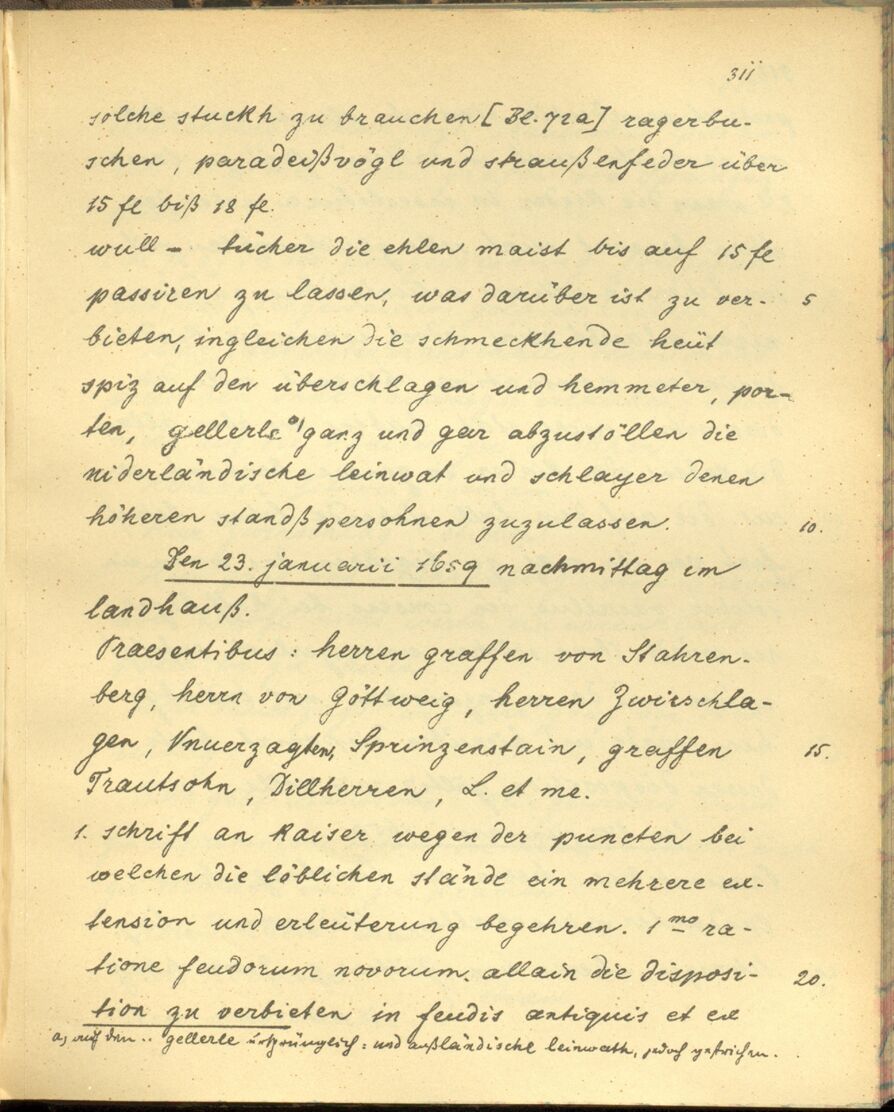 311
solche stuckh zu brauchen [Bl. 72a] ragerbu-
schen, paradeißvögl und straußenfeder über
15 fl biß 18 fl.
wull - tücher die ehlen maist bis auf 15 fl
passiren zu lassen, was darüber ist zu ver- 5
bieten, ingleichen die schmeckhende heüt
spiz auf den überschlagen und hemmeter, por-
ten, gellerle a) ganz und gar abzustöllen die
niderländische leinwat und schlayer denen
höheren standßpersohnen zuzulassen. 10.
Den 23. januarii 1659 nachmittag im
landhauß.
Praesentibus: herren graffen von Stahren-
berg, herrn von Göttweig, herren Zwirschla-
gen, Vnuerzagten, Sprinzenstain, graffen 15.
Trautsohn, Dillherren, L. et me.
1. schrift an Kaiser wegen der puncten bei
welchen die löblichen stände ein mehrere ex-
tension und erleüterung begehren. 1mo ra-
tione feudorum novorum. allain die disposi- 20.
tion zu verbieten in feudis antiquis et ex
a) auf den .. gellerle ursprünglich: und außländische leinwath, jedoch gestrichen.